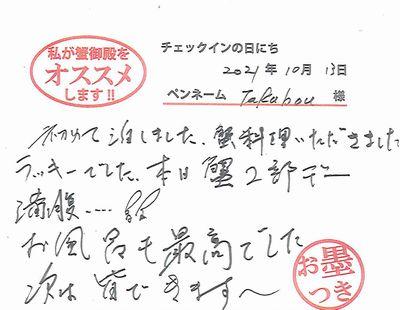 私が蟹御殿を
オススメ
します!!
チェックインの日にち
2021年10月13日
ペンネーム Takuhou 様
初めて泊しました、蟹料理いただきました
ラッキーでした、本日蟹2部デー
満腹....
お風呂も最高でした
次は皆できます〜
お墨
つき